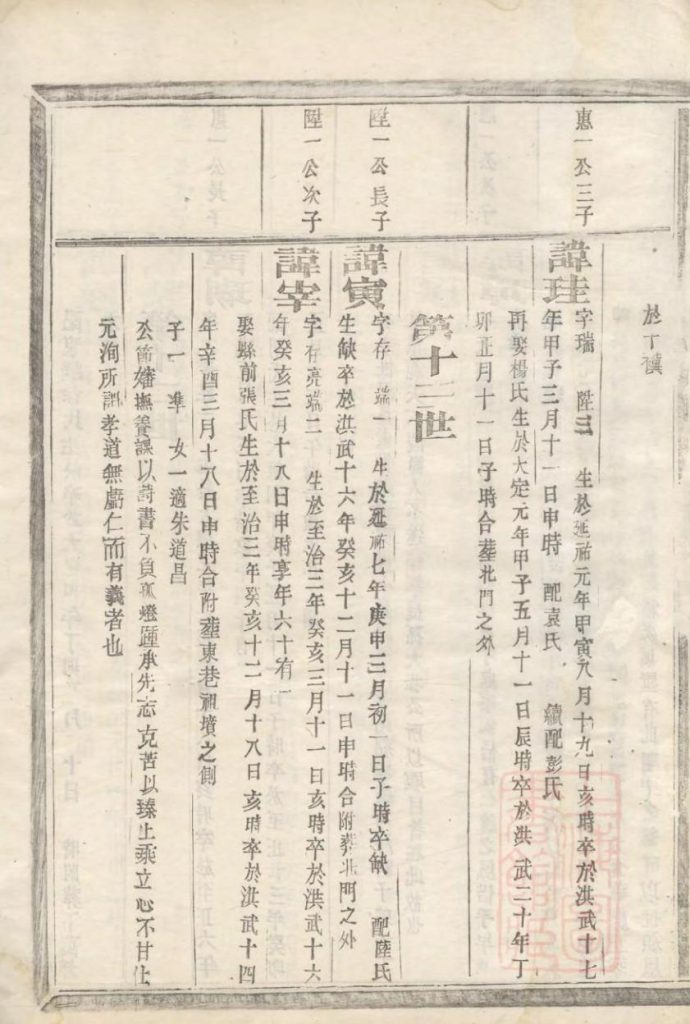 於丁禛
惠一公三子
諱珪
字瑞 陞三 生於延祐元年甲寅八月十九日亥時卒於洪武十七
年甲子三月十一日申時 配袁氏 續配彭氏
再娶楊氏生於大定元年甲子五月十一日辰時卒於洪武二十年丁
卯正月十一日子時合葬北門之外
第十三世
陞一公長子
諱寅
字存 端一 生於延祐七年庚申三月初一日子時卒缺 配陸氏
生缺卒於洪武十六年癸亥十二月十一日申時合附葬北門之外
陞一公次子
諱宰
字存亮端二 生於至治三年癸亥三月十一日亥時卒於洪武十六
年癸亥三月十八日申時享年六十有一
娶縣前張氏生於至治三年癸亥十二月十八日亥時卒於洪武十四
年辛酉三月十八日申時合附塟東巷祖墳之側
子一 準 女一適朱道昌
公節 撫養課以詩書不負孤燈 承先志克苦以臻上乘立心不甘上
元洵所謂孝道無虧仁而有義者也